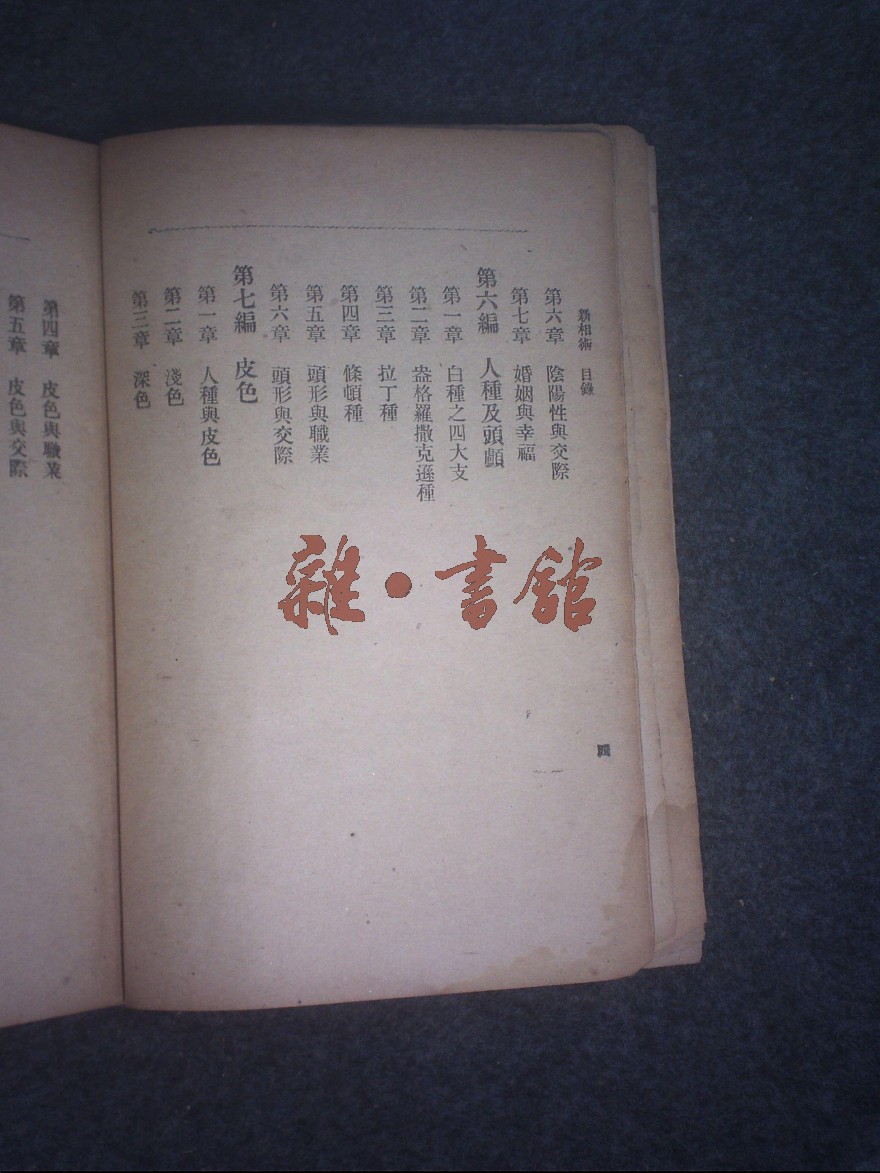 新相術 目錄
第六章 陰陽性與交際
第七章 婚姻與幸福
第六編 人種及頭顱
第一章 白種之四大支
第二章 盎格羅撒克遜種
第三章 拉丁種
第四章 條頓種
第五章 頭形與職業
第六章 頭形與交際
第七編 皮色
第一章 人種與皮色
第二章 淺色
第三章 深色
四
第四章 皮色與職業
第五章 皮色與交際
雜·書館